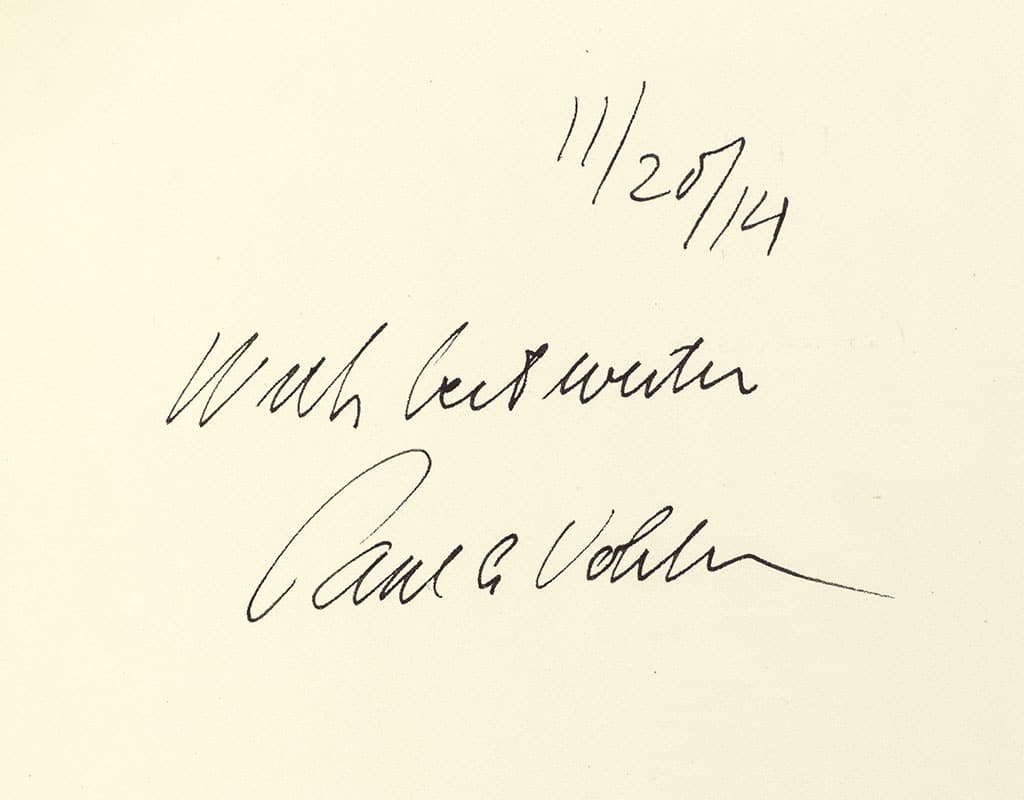 11/20/14
With best wishes
Paul A Volcker